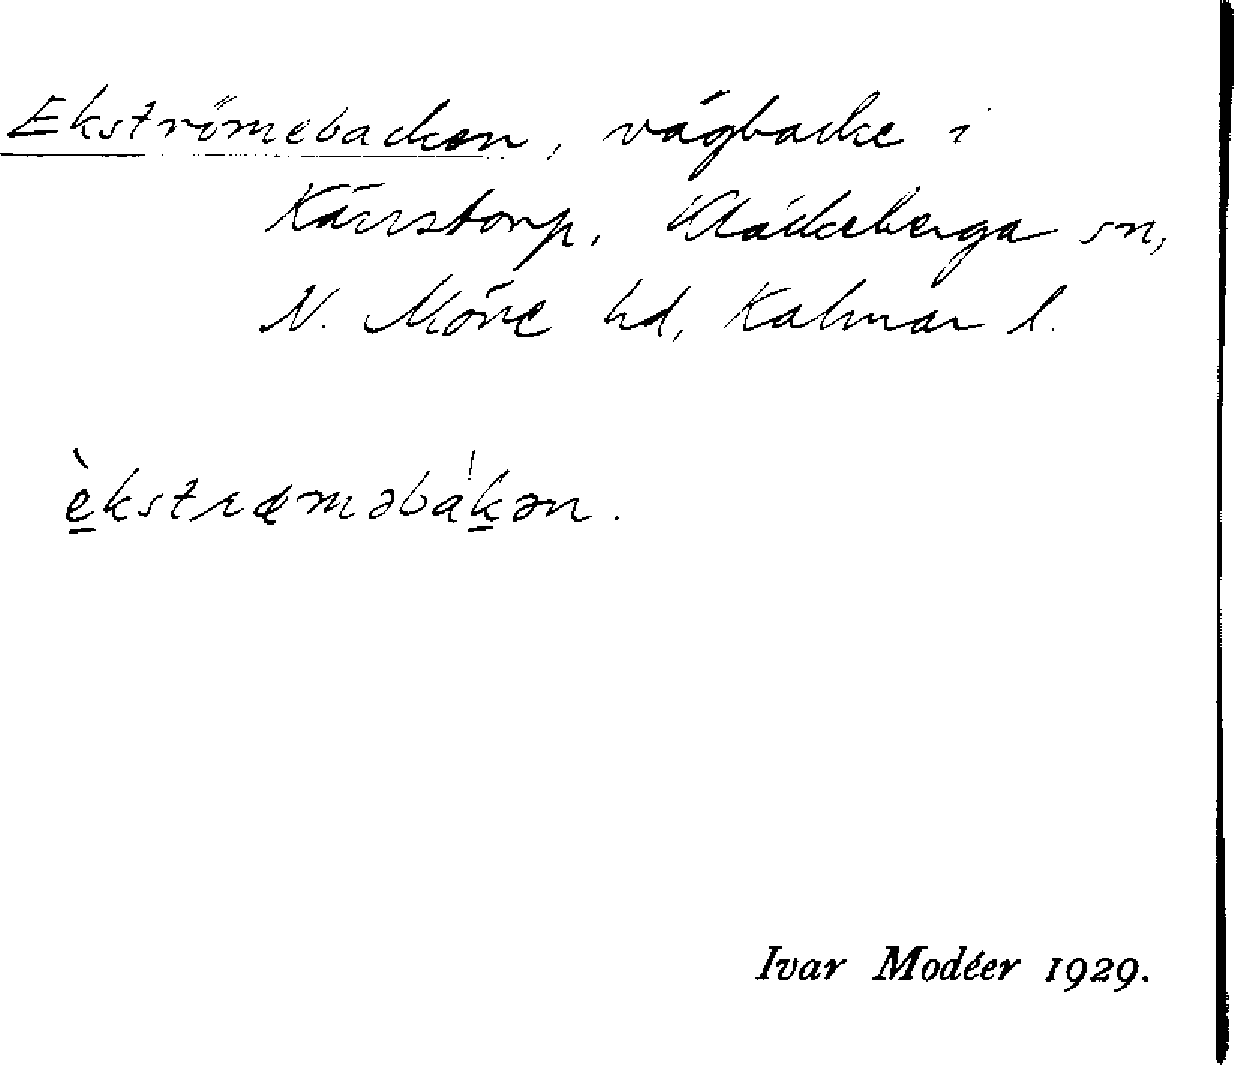 Ekströmebacken, vägbacke i
Kärrstorp, Kläckeberga sn,
N. Möre hd, Kalmar l.
èkstrœməbákən.
Ivar Modéer 1929.